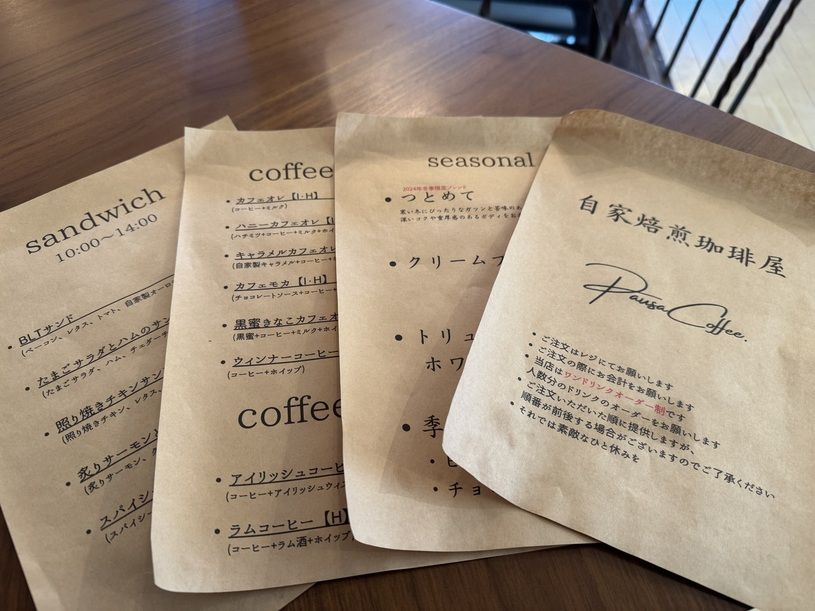 sandwich
10:00〜14:00
BLTサンド
(ベーコン、レタス、トマト、自家製オーロ
たまごサラダとハムのサン
(たまごサラダ、ハム、チェダーチ
照り焼きチキンサン
(照り焼きチキン、レタス、
炙りサーモン
(炙りサーモン、
スパイシ
(スパイシ
coffee
カフェオレ【I·H】
(コーヒー+ミルク)
ハニーカフェオレ【I
(ハチミツ+コーヒー+ミルク+ホイ
キャラメルカフェオレ
(自家製キャラメル+コーヒー+
カフェモカ【I·H】
(チョコレートソース+コーヒー+
黒蜜きなこカフェオ
(黒蜜+コーヒー+ミルク+ホイ
ウィンナーコーヒー
(コーヒー+ホイップ)
coffee
アイリッシュコーヒ
(コーヒー+アイリッシュウィ
ラムコーヒー【H】
(コーヒー+ラム酒+ホイップ)
seasonal
2024年冬季限定ブレンド
つとめて
寒い冬にぴったりなガツンと苦味のあ
深いコクや重厚感のあるボディをお
クリームブ
トリュ
ホワ
季
ビ
チョ
自家焙煎珈琲屋
Pausa Coffee.
• ご注文はレジにてお願いします
• ご注文の際にお会計をお願いします
• 当店はワンドリンクオーダー制です
人数分のドリンクのオーダーをお願いします
• ご注文いただいた順に提供しますが、
順番が前後する場合がございますのでご了承ください
• それでは素敵なひと休みを